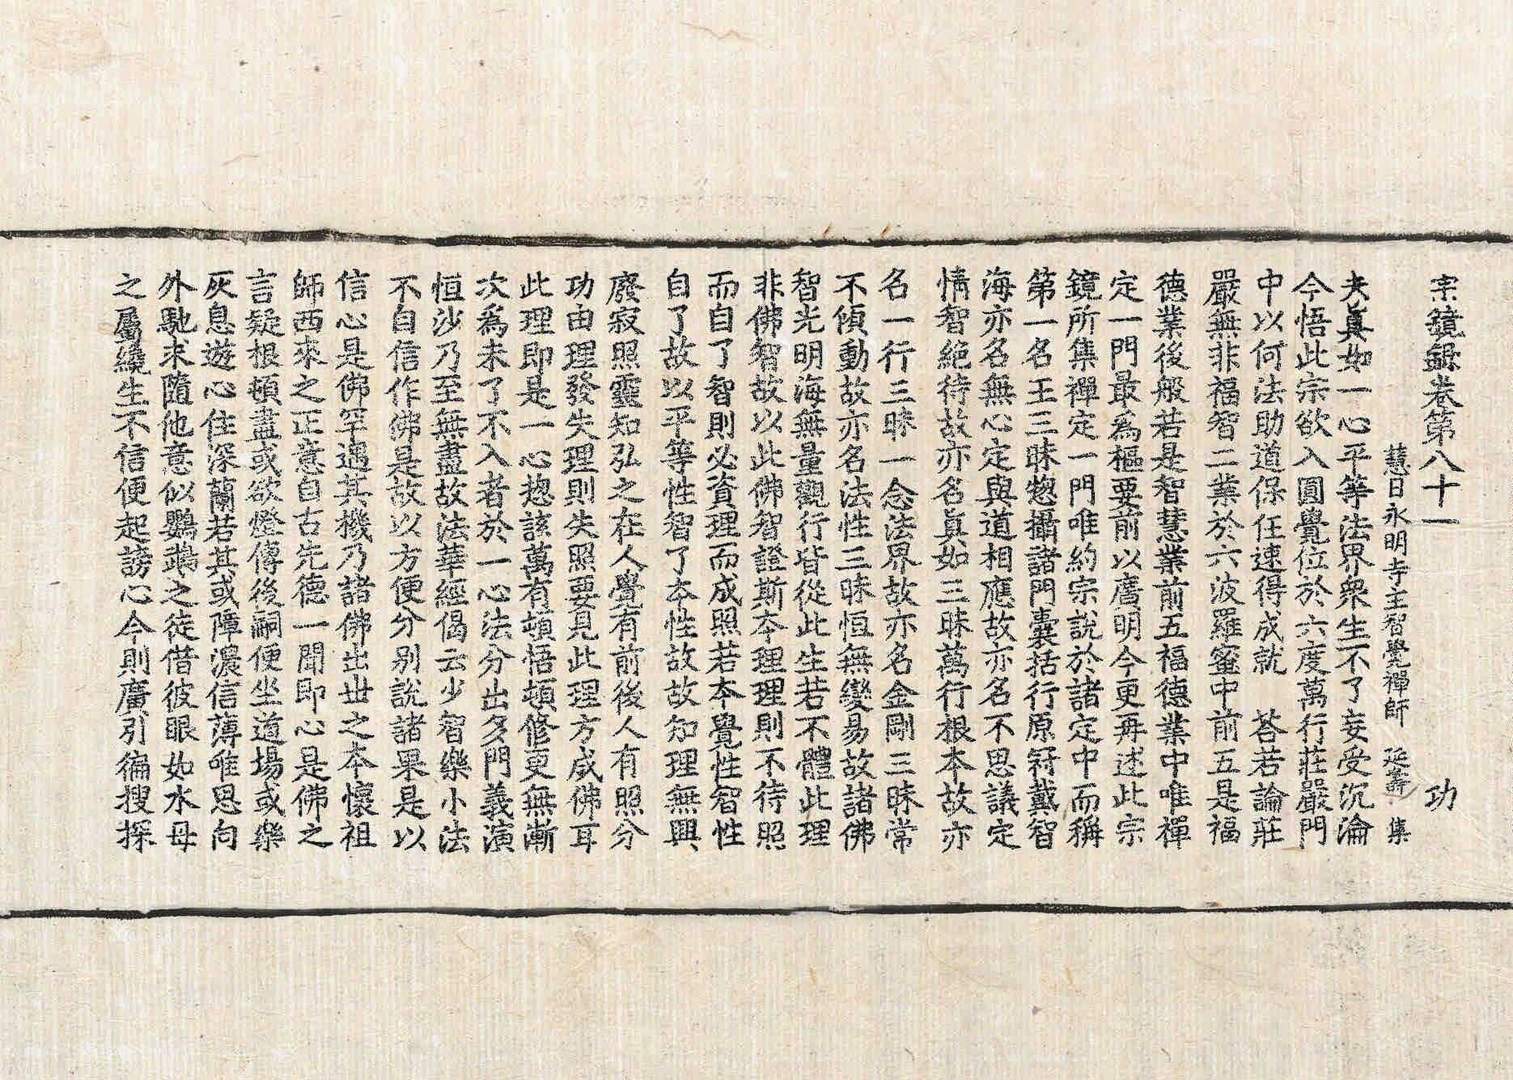 宗鏡錄卷第八十一 功
慧日永明寺主智覺禪師 延壽 集
夫眞如一心平等法界衆生不了妄受沉淪
今悟此宗欲入圓覺位於六度萬行莊嚴門
中以何法助道保任速得成就 荅若論莊
嚴無非福智二業於六波羅蜜中前五是福
德業後般若是智慧業前五福德業中唯禪
定一門最爲樞要前以廣明今更再述此宗
鏡所集禪定一門唯約宗說於諸定中而稱
第一名王三昧惣攝諸門囊括行原冠戴智
海亦名無心定與道相應故亦名不思議定
情智絶待故亦名眞如三昧萬行根本故亦
名一行三昧一念法界故亦名金剛三昧常
不傾動故亦名法性三昧恒無變易故諸佛
智光明海無量觀行皆從此生若不體此理
非佛智故以此佛智證斯夲理理則不待照
而自了智則必資理而成照若夲覺性智性
自了故以平等性智了夲性故故知理無興
廢寂照靈知弘之在人覺有前後人有照分
功由理發失理則失照要見此理方成佛耳
此理即是一心摠該萬有頓悟頓修更無漸
次爲未了不入者於一心法分出多門義演
恒沙乃至無盡故法華經偈云少智樂小法
不自信作佛是故以方便分别說諸果是以
信心是佛罕遇其機乃諸佛出丗之夲懷祖
師西來之正意自古先德一聞即心是佛之
言疑根頓盡或欲燈傳後嗣便坐道場或樂
灰息遊心住深蘭若其或障濃信薄唯思向
外馳求隨他意似鸚鵡之徒借彼眼如水母
之屬纔生不信便起謗心今則廣引徧搜探